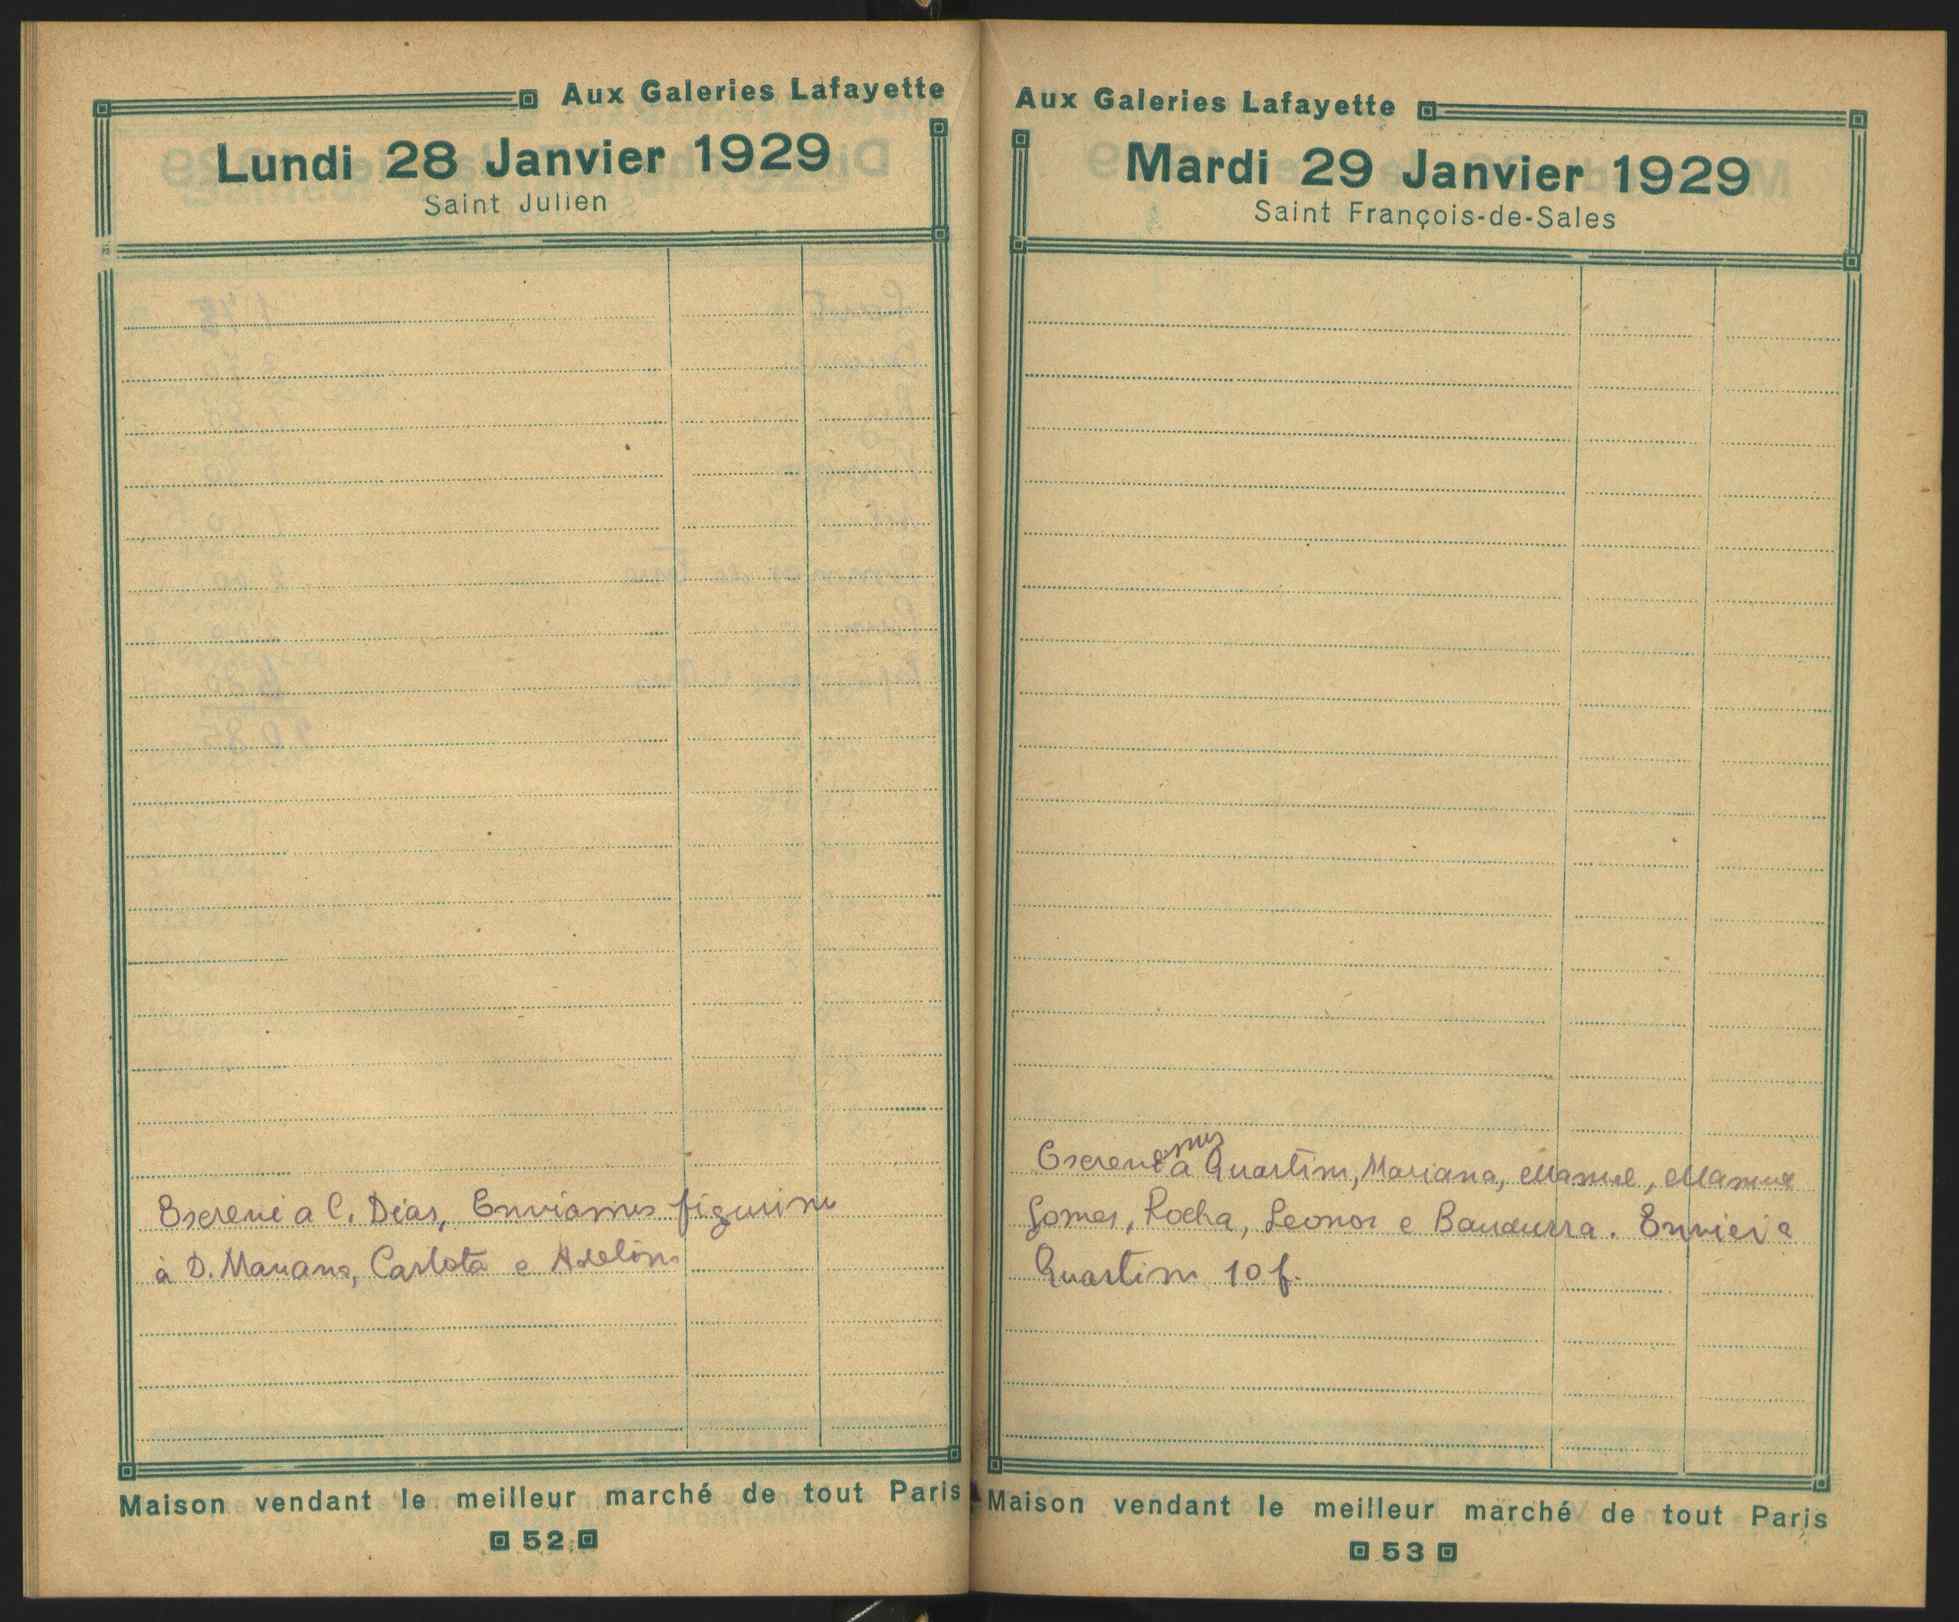 Aux Galeries Lafayette
Lundi 28 Janvier 1929
Saint Julien
Escrevi a C. Dias, Enviamos figurino
à D. Mariana, Carlota e Adelina
Maison vendant le meilleur marché de tout Paris
52
Aux Galeries Lafayette
Mardi 29 Janvier 1929
Saint François-de-Sales
mos
Escreve a Quartim, Mariana, Manuel, Manuel
Gomes, Rocha, Leonor e Bandurra. Enviei a
Quartim 10 f.
Maison vendant le meilleur marché de tout Paris
53